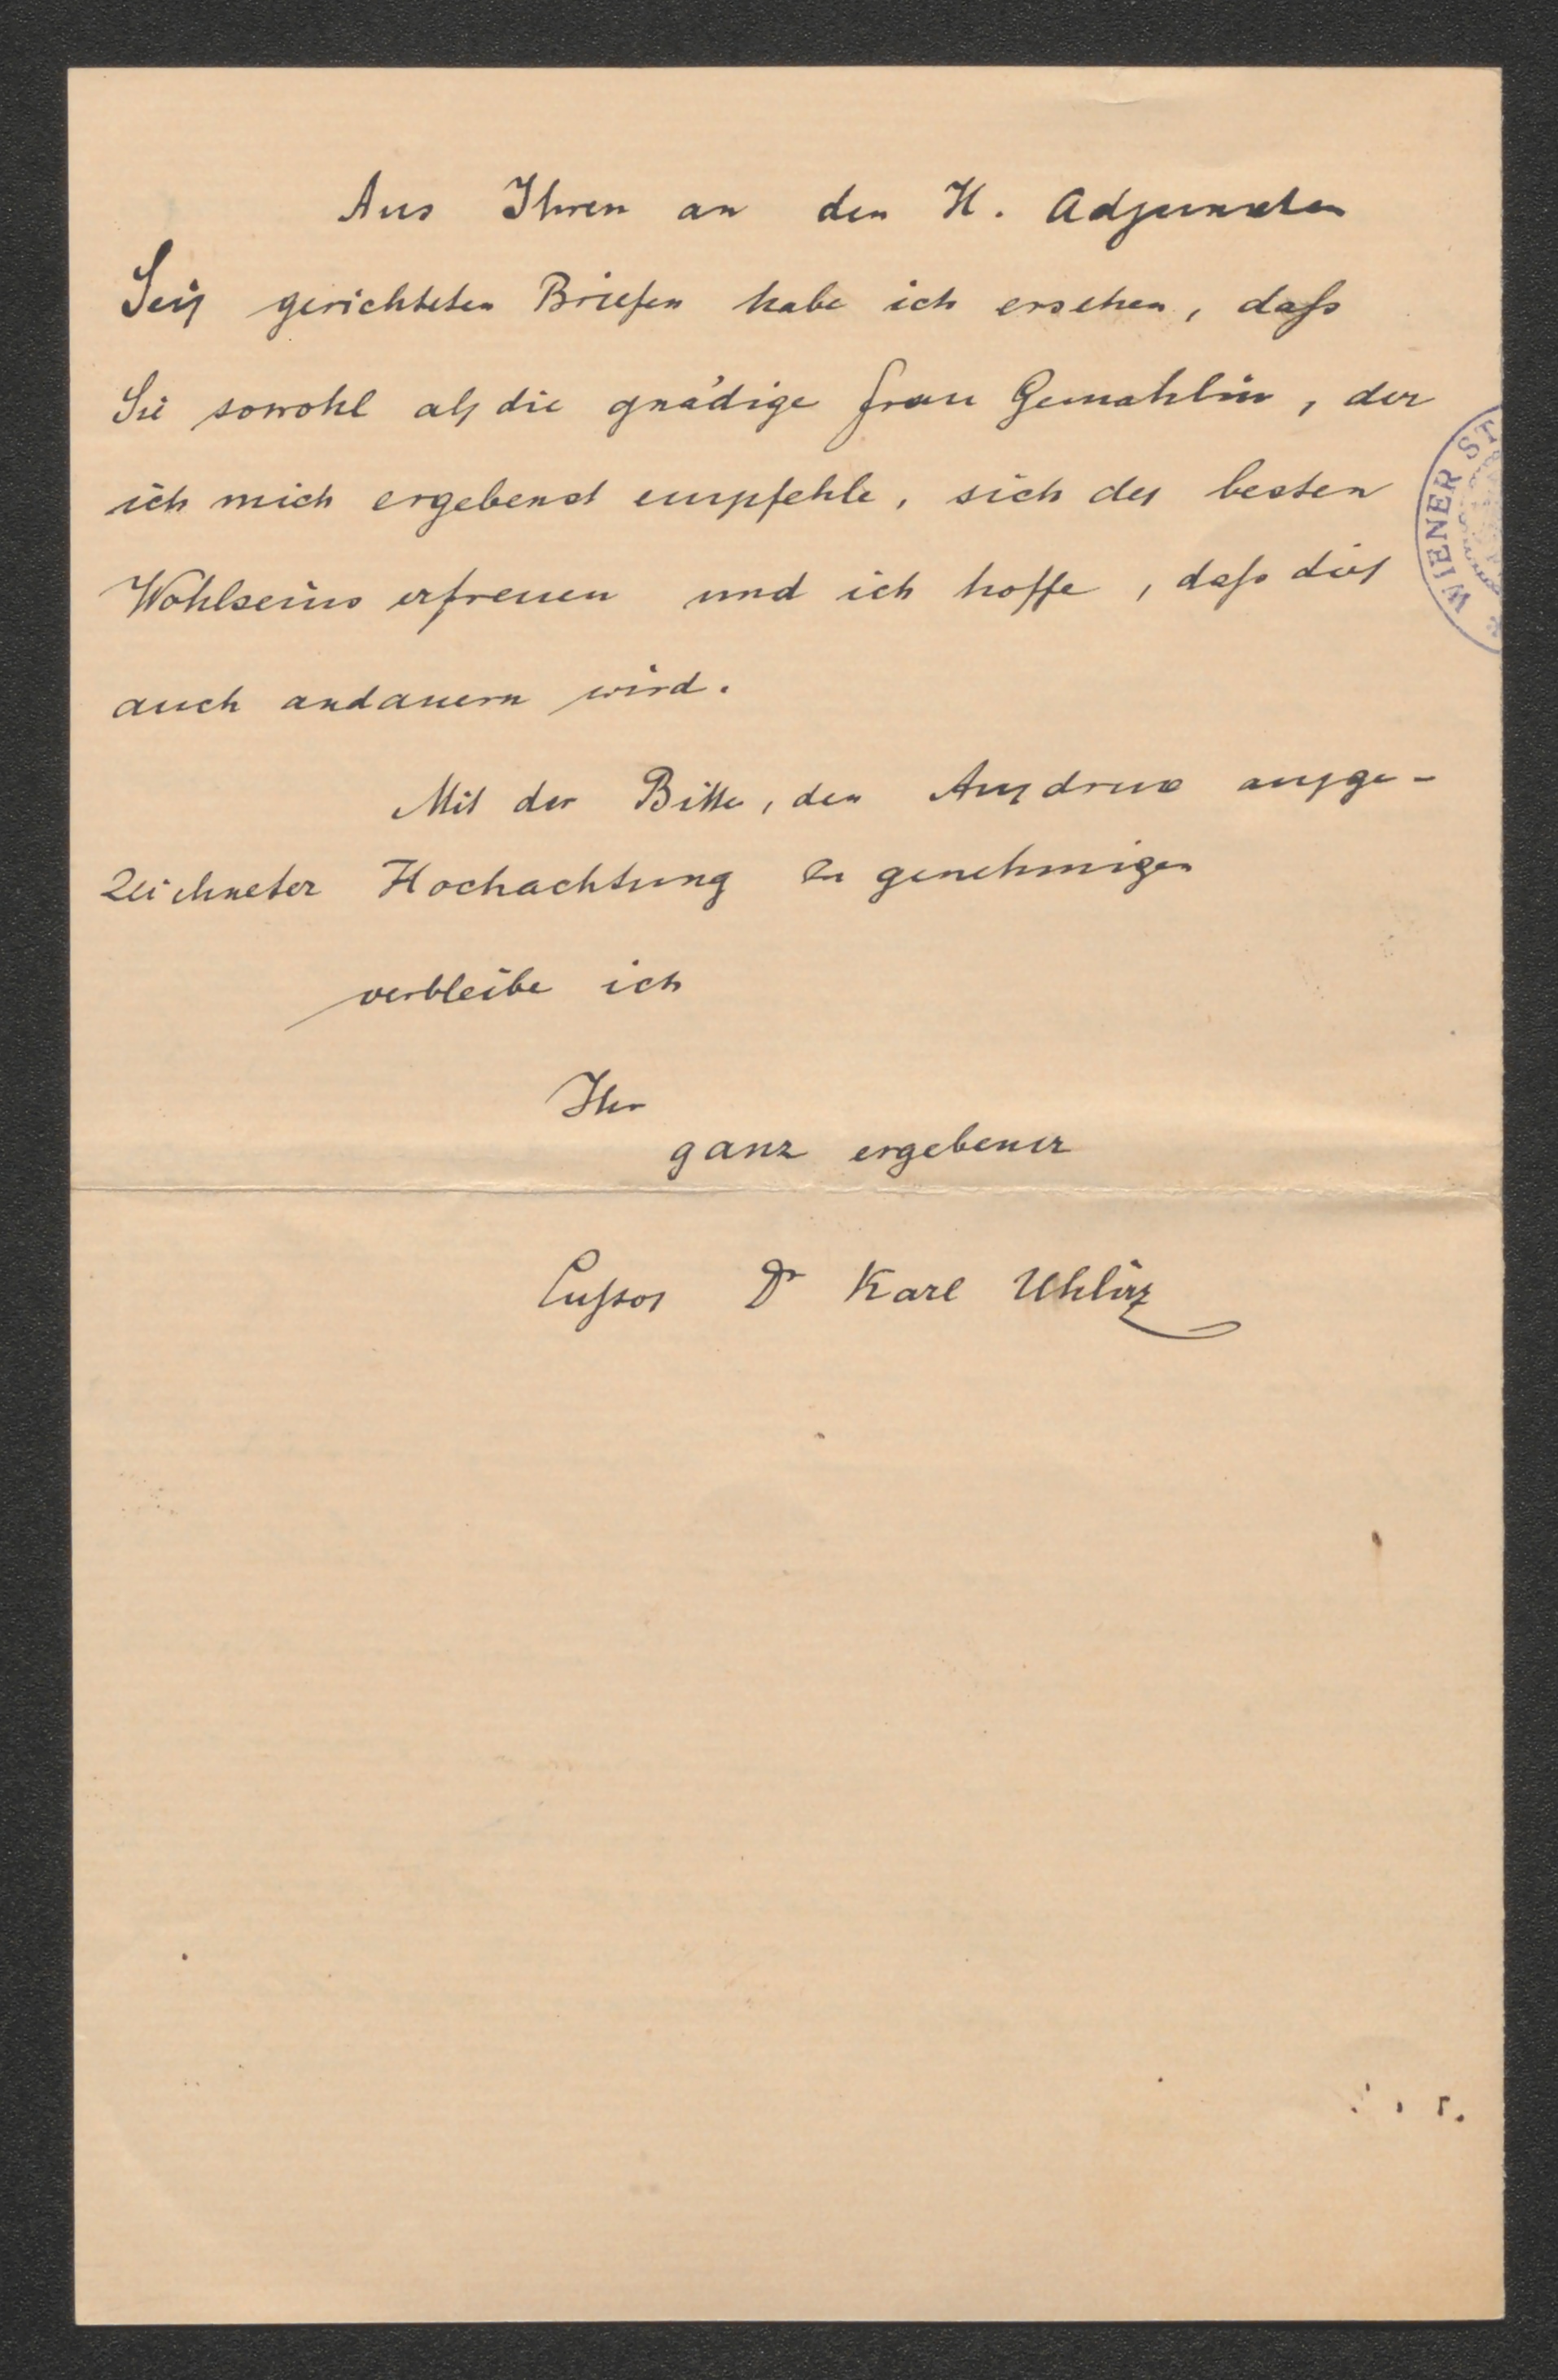 Aus Ihren an den H. Adjuncten
Seis gerichteten Briefen habe ich ersehen, daß
Sie sowohl als die gnädige Frau Gemahlin, der
ich mich ergebenst empfehle, sich des besten
Wohlseins erfreuen und ich hoffe, daß dies
auch andauern wird.
Mit der Bitte, den Ausdruck ausge-
zeichneter Hochachtung zu genehmigen
verbleibe ich
Ihr
ganz ergebener
Custos Dr Karl Uhlirz
WIENER ST